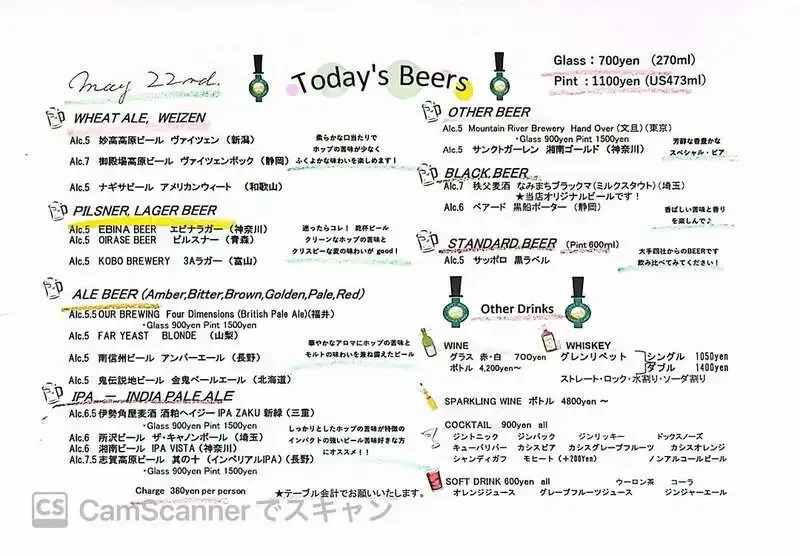 May 22nd.
Today's Beers
Glass：700yen （270ml）
Pint：1100yen (US473ml)
WHEAT ALE, WEIZEN
Alc.5 妙高高原ビール ヴァイツェン（新潟）
Alc.7 御殿場高原ビール ヴァイツェンボック（静岡）
Alc.5 ナギサビール アメリカンウィート （和歌山）
柔らかな口当たりで
ホップの苦味が少なく
ふくよかな味わいを楽しめます！
PILSNER, LAGER BEER
Alc.5 EBINA BEER エビナラガー（神奈川）
Alc.5 OIRASE BEER ピルスナー（青森）
Alc.5 KOBO BREWERY 3Aラガー（富山）
迷ったらコレ！ 乾杯ビール
クリーンなホップの苦味と
クリスピーな麦の味わいが good！
ALE BEER (Amber,Bitter,Brown,Golden,Pale,Red)
Alc.5.5 OUR BREWING Four Dimensions (British Pale Ale)(福井)
・Glass 900yen Pint 1500yen
Alc.5 FAR YEAST BLONDE （山梨）
Alc.5 南信州ビール アンバーエール（長野）
Alc.5 鬼伝説地ビール 金鬼ペールエール（北海道）
華やかなアロマにホップの苦味と
モルトの味わいを兼ね備えたビール
IPA － INDIA PALE ALE
Alc.6.5 伊勢角屋麦酒 酒粕ヘイジーIPA ZAKU 新緑（三重）
・Glass 900yen Pint 1500yen
Alc.6 所沢ビール ザ・キャノンボール（埼玉）
Alc.6 湘南ビール IPA VISTA（神奈川）
Alc.7.5 志賀高原ビール 其の十（インペリアルIPA）（長野）
・Glass 900yen Pint 1500yen
しっかりとしたホップの苦味が特徴の
インパクトの強いビール苦味好きな方
にオススメ！！
Charge 380yen per person
★テーブル会計でお願いいたします。
OTHER BEER
Alc.5 Mountain River Brewery Hand Over（文旦）（東京）
・Glass 900yen Pint 1500yen
Alc.5 サンクトガーレン 湘南ゴールド（神奈川）
芳醇な香豊かな
スペシャル・ビア
BLACK BEER
Alc.7 秩父麦酒 なみまちブラックマ（ミルクスタウト）（埼玉）
★当店オリジナルビールです！
Alc.6 ベアード 黒船ポーター（静岡）
香ばしい苦味と香り
を楽しんで♪
STANDARD BEER (Pint 600ml)
Alc.5 サッポロ 黒ラベル
大手四社からのBEERです
飲み比べてみてください！
Other Drinks
WINE
グラス 赤・白 700yen
ボトル 4,200yen～
WHISKEY
グレンリベット シングル 1050yen
ダブル 1400yen
ストレート・ロック・水割り・ソーダ割り
SPARKLING WINE ボトル 4800yen ～
COCKTAIL 900yen all
ジントニック ジンバック ジンリッキー ドックスノーズ
キューバリバー カシスビア カシスグレープフルーツ カシスオレンジ
シャンディガフ モヒート（＋200Yen） ノンアルコールビール
SOFT DRINK 600yen all ウーロン茶 コーラ
オレンジジュース グレープフルーツジュース ジンジャーエール
CS CamScanner でスキャン